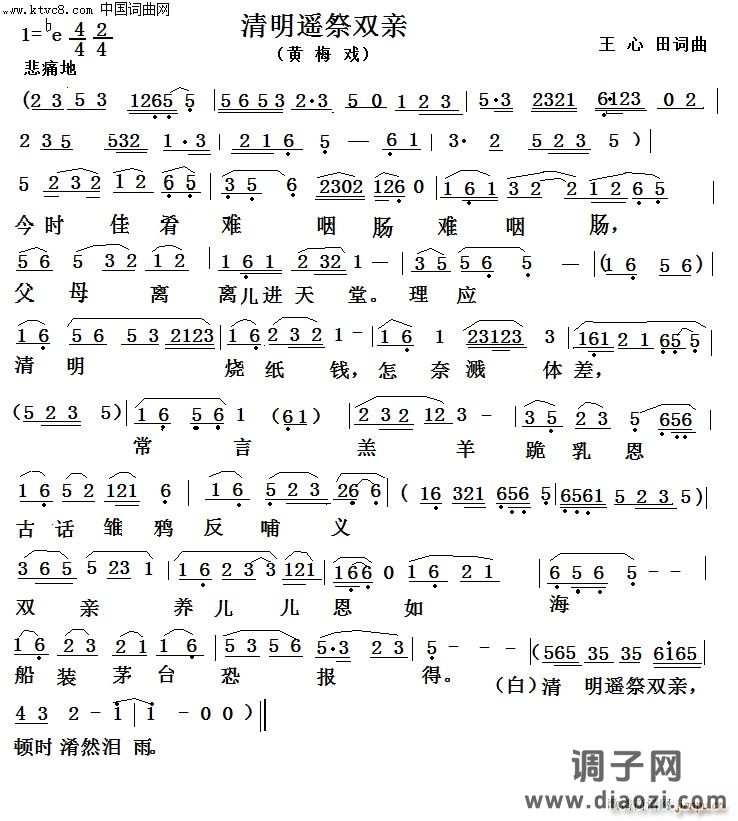 www.ktvc8.com 中国词曲网
清明遥祭双亲
1=♭e 4/4 2/4
（黄梅戏）
王心田词曲
悲痛地
(2 3 5 3 1265 5 | 5 6 5 3 2·3 5 0 1 2 3 | 5·3 2321 6123 0 2
2 3 5 532 1·3 | 2 1 6 5 — 6 1 | 3· 2 5 2 3 5 ) |
5 2 3 2 1 2 6 5 | 3 5 6 2302 126 0 | 1 6 1 3 2 2 1 2 6 5
今时佳肴难咽肠难咽肠，
5 6 5 3 2 1 2 | 1 6 1 2 32 1 - | 3 5 5 6 5 - | (1 6 5 6 ) |
父母离离儿进天堂。理应
1 6 5 6 5 3 2123 | 1 6 2 3 2 1 - | 1 6 23123 3 | 161 2 1 65 5 |
清明烧纸钱，怎奈溅体差，
(5 2 3 5) | 1 6 5 6 1 (6 1) | 2 3 2 12 3 - | 3 5 2 3 0 656 |
常言羔羊跪乳恩
1 6 5 2 121 6 | 1 6 5 2 3 26 6 | (16 321 656 5 | 6561 5 2 3 5) |
古话雏鸦反哺义
3 6 5 5 23 1 | 1 6 2 3 3 121 | 166 0 1 6 2 1 | 6 5 6 5 - - |
双亲养儿儿恩如海
1 6 2 3 2 1 1 6 | 5 3 5 6 5·3 2 3 | 5 - - - | (565 35 35 6i65 |
船装茅台恐报得。（白）清明遥祭双亲，
4 3 2 - i | i - 0 0 ) ||
顿时淆然泪雨。
调子网
www.diaozi.com